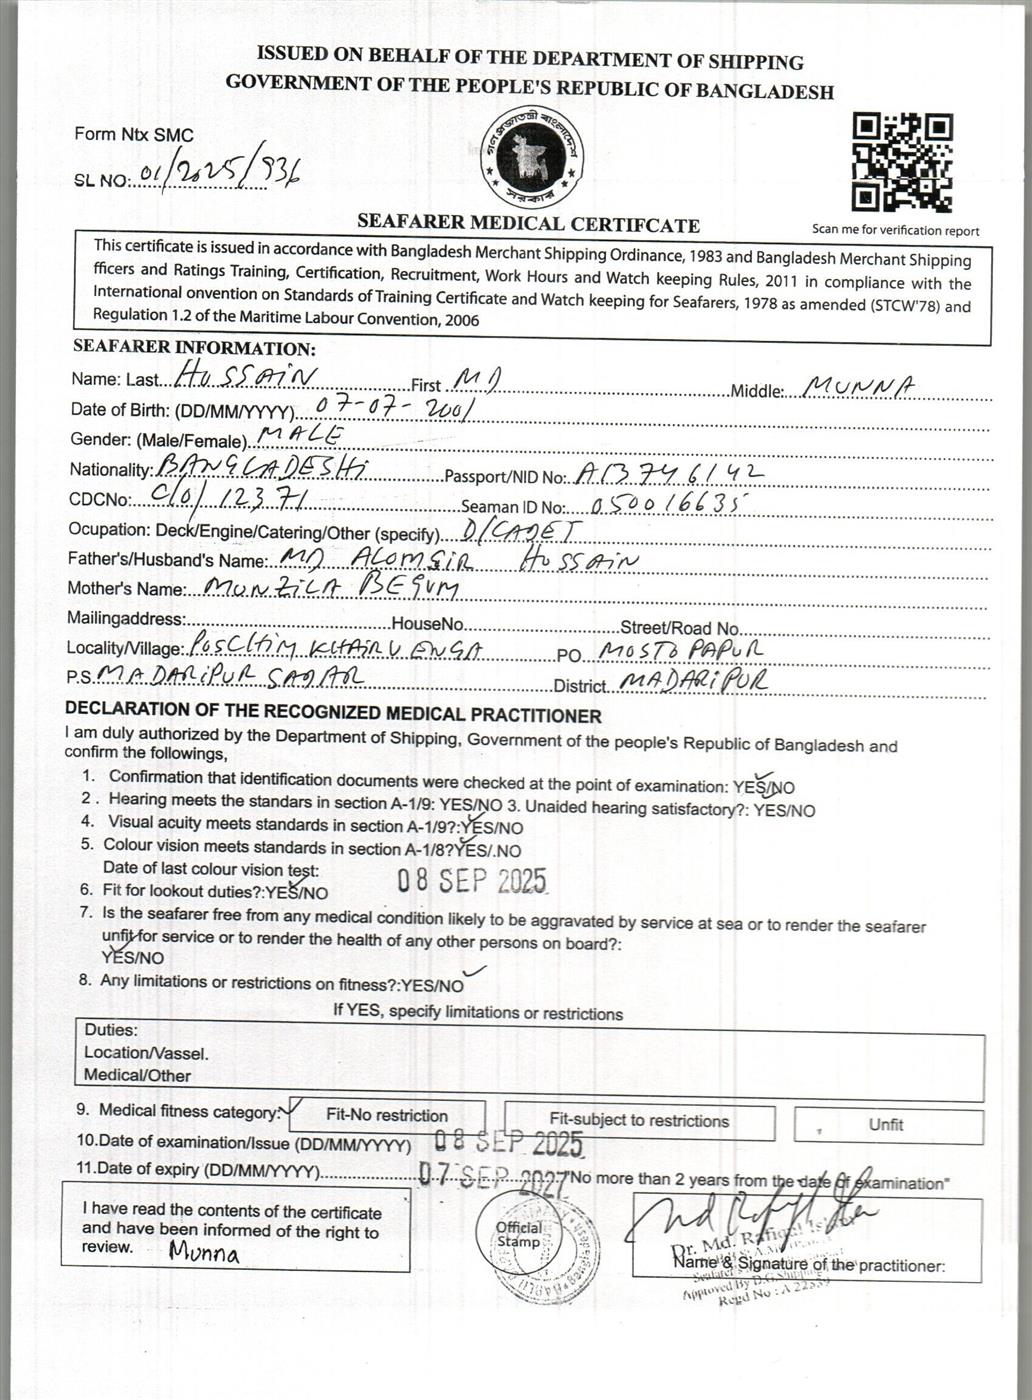 ISSUED ON BEHALF OF THE DEPARTMENT OF SHIPPING
GOVERNMENT OF THE PEOPLE'S REPUBLIC OF BANGLADESH
Form Ntx SMC
SL NO:..01/2025/936
গণপ্রজাতন্ত্রী বাংলাদেশ সরকার
SEAFARER MEDICAL CERTIFCATE
Scan me for verification report
This certificate is issued in accordance with Bangladesh Merchant Shipping Ordinance, 1983 and Bangladesh Merchant Shipping
fficers and Ratings Training, Certification, Recruitment, Work Hours and Watch keeping Rules, 2011 in compliance with the
International onvention on Standards of Training Certificate and Watch keeping for Seafarers, 1978 as amended (STCW'78) and
Regulation 1.2 of the Maritime Labour Convention, 2006
SEAFARER INFORMATION:
Name: Last...HUSSAIN...First...MD...Middle:...MUNNA
Date of Birth: (DD/MM/YYYY)...07-07-2001
Gender: (Male/Female)..MALE
Nationality:BANGLADESHI...Passport/NID No:..A13746142
CDCNo:...C/O/12371...Seaman ID No:...050016635
Ocupation: Deck/Engine/Catering/Other (specify)....D/CADET
Father's/Husband's Name:..MD ALOMGIR HOSSAIN
Mother's Name:...MUNZILA BEGUM
Mailingaddress:...HouseNo...Street/Road No...
Locality/Village:.POSCHIM KHAIRVENGA...PO..MOSTOPAPUR
P.S.MADARIPUR SADAR...District..MADARIPUR
DECLARATION OF THE RECOGNIZED MEDICAL PRACTITIONER
I am duly authorized by the Department of Shipping, Government of the people's Republic of Bangladesh and
confirm the followings,
1. Confirmation that identification documents were checked at the point of examination: YES/NO
2 . Hearing meets the standars in section A-1/9: YES/NO 3. Unaided hearing satisfactory?: YES/NO
4. Visual acuity meets standards in section A-1/9?:YES/NO
5. Colour vision meets standards in section A-1/8?YES/.NO
Date of last colour vision test: 08 SEP 2025
6. Fit for lookout duties?:YES/NO
7. Is the seafarer free from any medical condition likely to be aggravated by service at sea or to render the seafarer
unfit for service or to render the health of any other persons on board?:
YES/NO
8. Any limitations or restrictions on fitness?:YES/NO
If YES, specify limitations or restrictions
Duties:
Location/Vassel.
Medical/Other
9. Medical fitness category: Fit-No restriction Fit-subject to restrictions Unfit
10.Date of examination/Issue (DD/MM/YYYY) 08 SEP 2025
11.Date of expiry (DD/MM/YYYY)...07 SEP 2027"No more than 2 years from the date of examination"
I have read the contents of the certificate
and have been informed of the right to
review. Munna
Official
Stamp
Dr. Md. Rafiqul Islam
Name & Signature of the practitioner:
Approved By D.G. Shipping
Regd No : A 22339